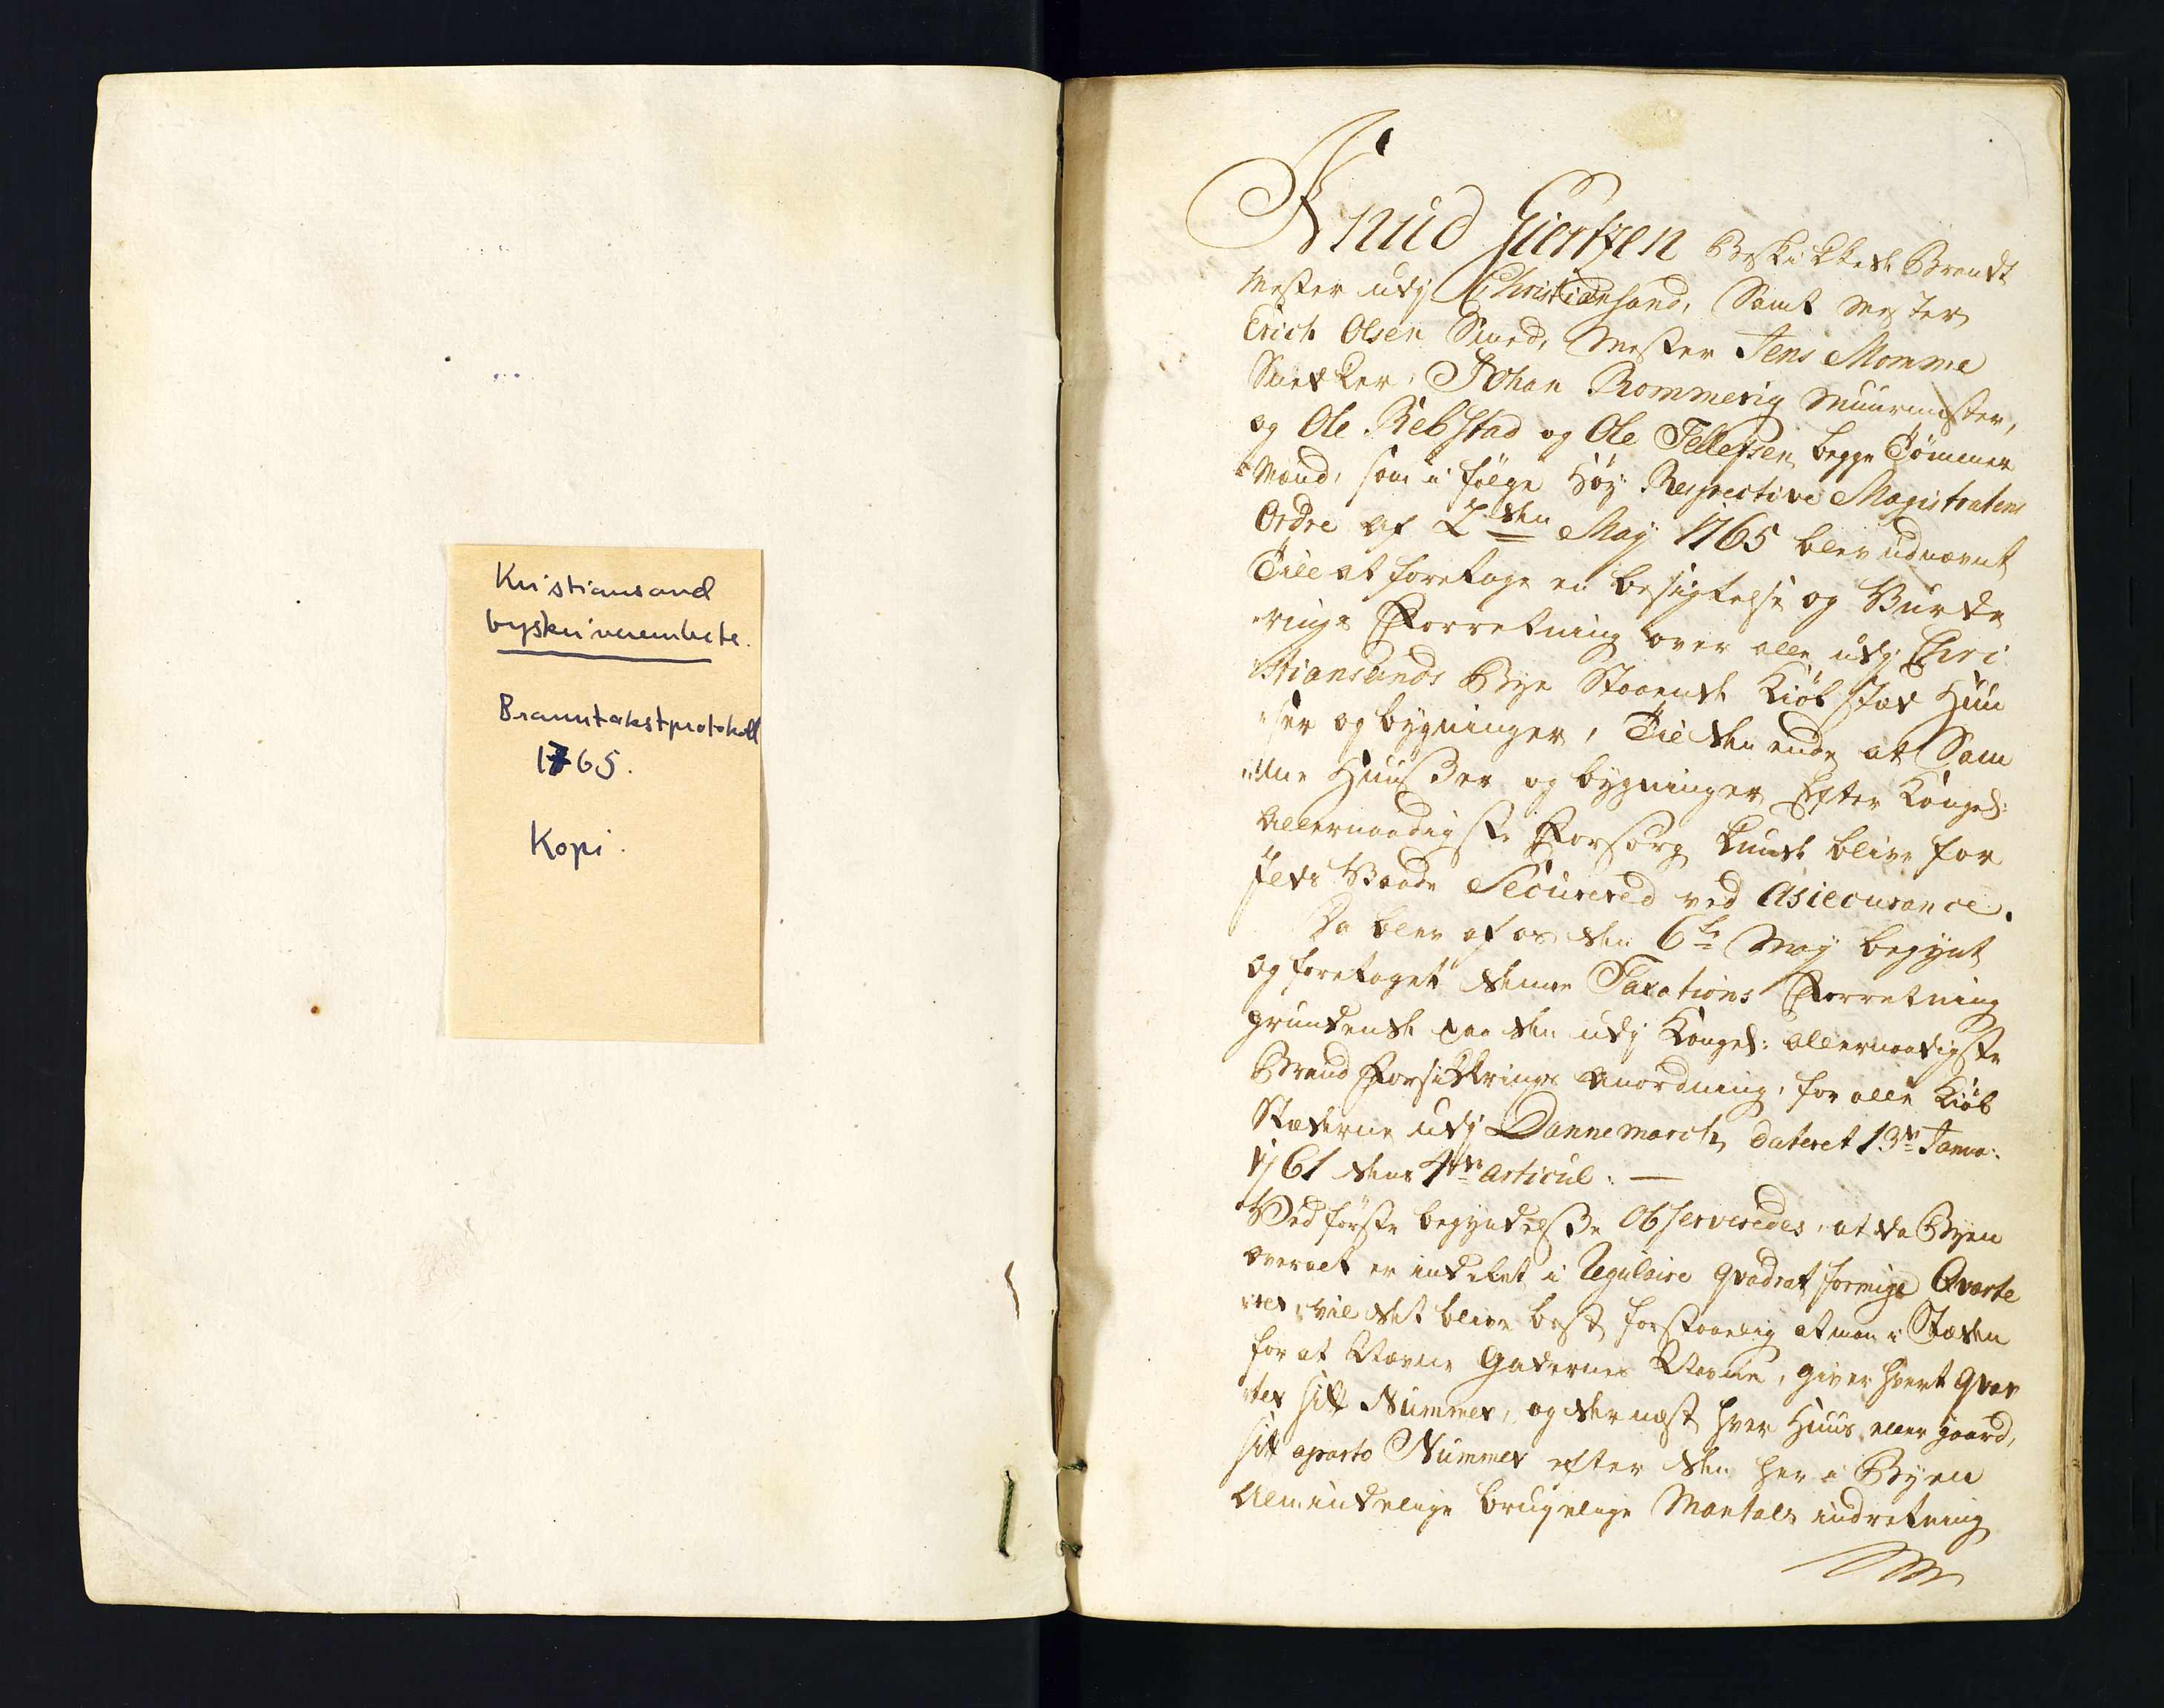 Kristiansand
byskriverembete.
Branntakstprotokoll
1765.
Kopi.
Knud Giertzen Beskikkede Brandt
Mester udj Christiansand, Samt Mester
Erich Olsen Smed, Mester Jens Momme
Snedker, Johan Rommerig Muurmester,
og Ole Rebstad og Ole Tellefsen begge Tömmer
Mænd, som i følge Höy Respective Magistratens
Ordre af 2den May 1765 blev udnævnt
Till at foretage en besigtelse og Burde
rings Forretning over alle udj Chri
stiansands Bye Staaende Kiöbstæd Huu
ser og bygninger, Til den ende at Sam
me Huußer og bygninger Efter Kongel:
Allernaadigste Forsorg kunde blive for
Ilds Vaade Securered ved Assecurance.
Da blev af os den 6te May begynt
og foretaget denne Taxations Forretning
grundende paa den udj Kongel: allernaadigste
Brand Forsikkrings Anordning, for alle Kiöb
Stæderne udj Dannemarch dateret 13de Janva:
1761 dens 4de Articul. —
Ved förste begyndelße Observeredes, at da Byen
overalt er indeelt i Regulaire qvadrat formige Qvarte
rer, vil det blive best forstaaelig at man i Stæden
for at Nævne Gadernes Navne, giver hvert qvar
ter sitt Nummer, og dernæst hver Huus eller gaard,
sitt aparto Nummer efter den her i Byen
Almindelige brugelige Mantals indretning